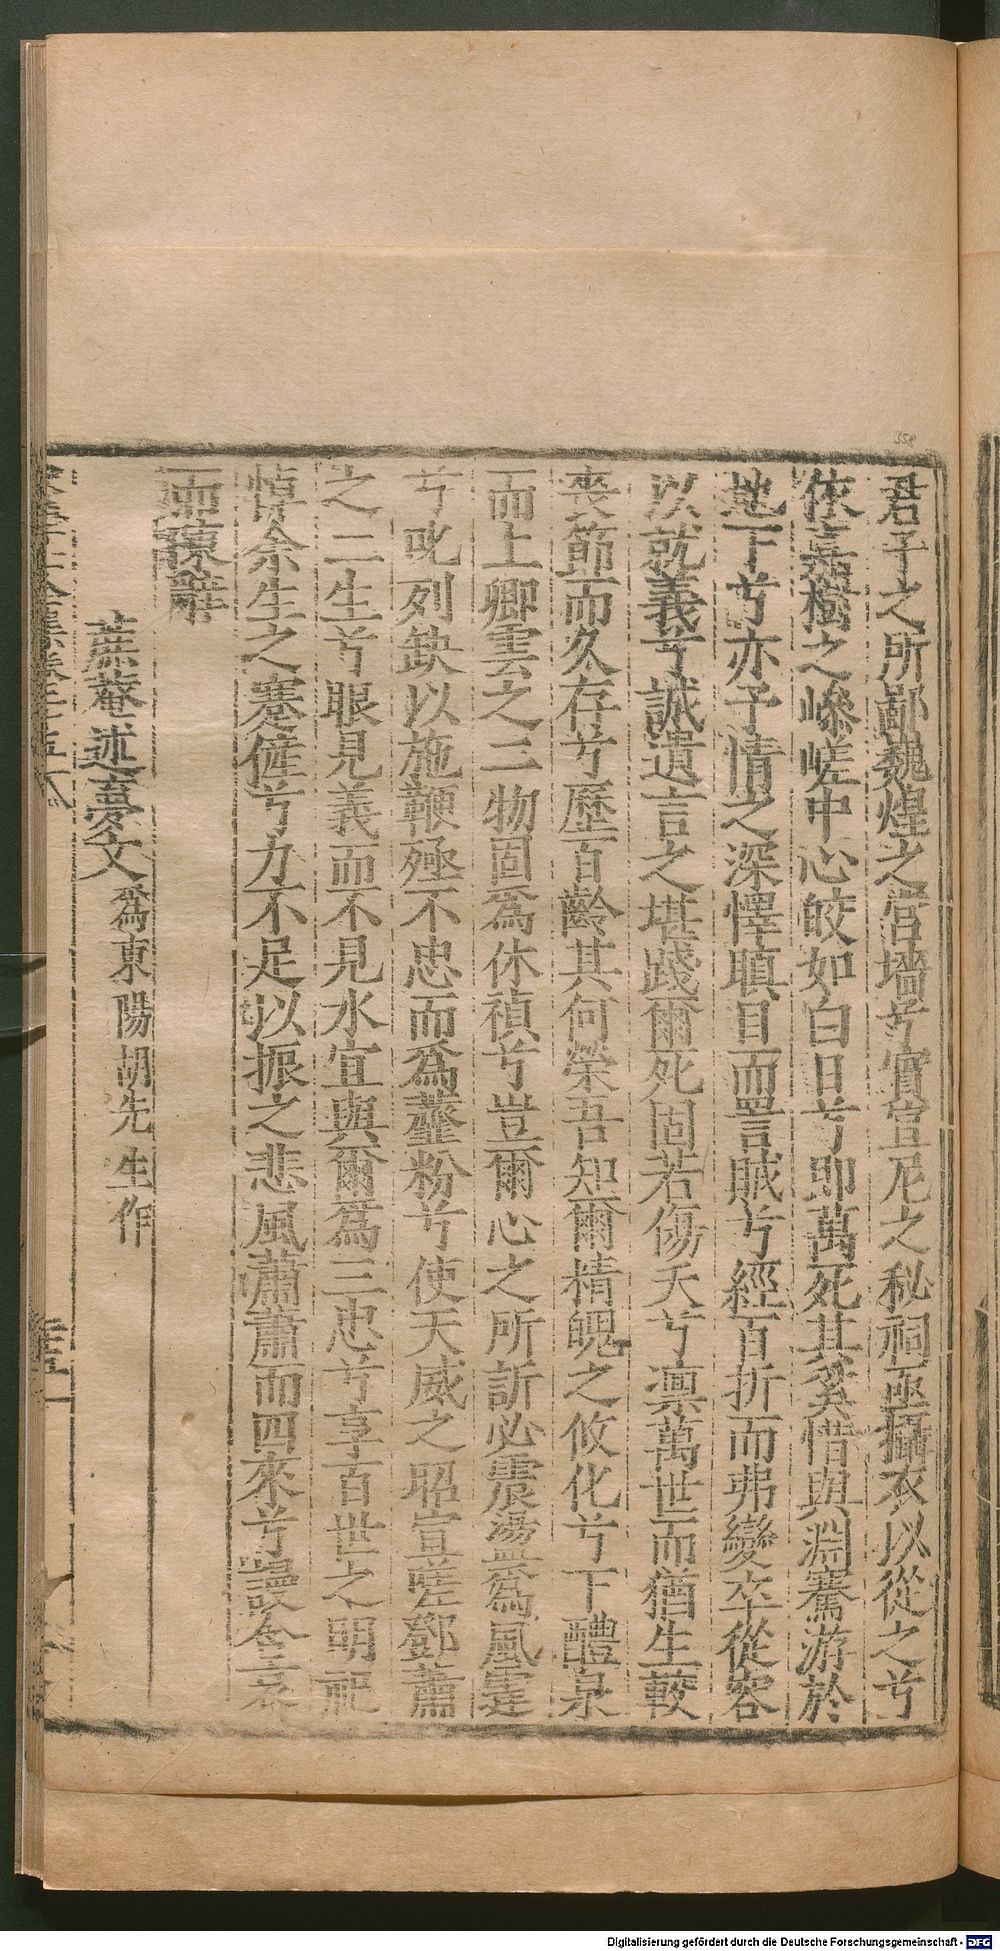 君子之所鄙巍煌之宮墻兮實宣尼之秘祠亟攝衣以從之兮
依嘉樹之嵾嵯中心皎如白日兮即萬死其奚惜與淵騫游於
地下兮亦予情之深懌瞋目而詈賊兮經百折而弗變卒從容
以就義兮誠遺言之堪踐爾死固若傷夭兮凛萬世而猶生較
喪節而久存兮歷百齡其何榮吾知爾精魄之攸化兮下醴泉
而上卿雲之二物固爲休禎兮豈爾心之所訢必震盪爲風霆
兮叱列缺以施鞭殛不忠而爲虀粉兮使天威之昭宣嗟鄧蕭
之二生兮眼見義而不見水宜與爾爲三忠兮享百世之明祀
悼余生之蹇僱兮力不足以振之悲風蕭蕭而四來兮謾含哀
而陳辭
蔗菴述夢文 爲東陽胡先生作